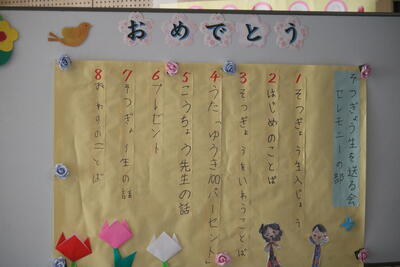 おめでとう
そつぎょう生を送る会
セレモニーの部
1 そつぎょう生入じょう
2 はじめのことば
3 そつぎょうをいわうことば
4 うた「ゆうき100パーセント」
5 こうちょう先生の話
6 プレゼント
7 そつぎょう生の話
8 おわりのことば